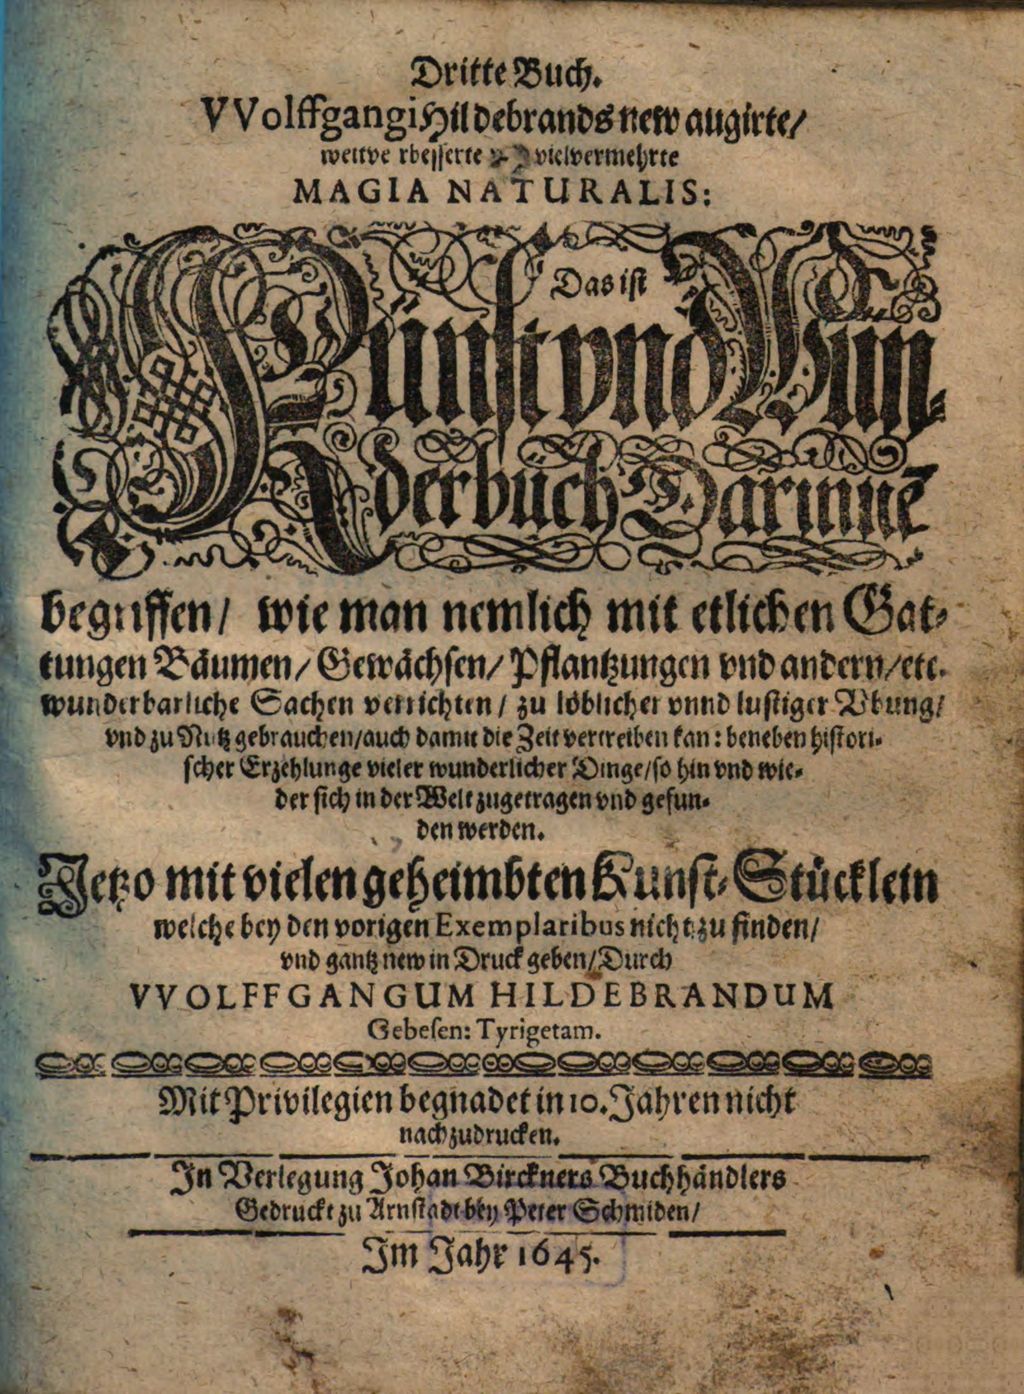 Dritte Buch.
VVolffgangi Hildebrands new augirte/
weitverbesserte vielvermehrte
MAGIA NATURALIS:
Das ist
Künst vnd Wun-
derbuch Darinnē
begriffen/ wie man nemlich mit etlichen Gat-
tungen Bäumen/ Gewächsen/ Pflantzungen vnd andern/ etc.
wunderbarliche Sachen verrichten/ zu löblicher vnnd lustiger Vbung/
vnd zu Nutz gebrauchen/ auch damit die Zeit vertreiben kan: beneben histori-
scher Erzehlunge vieler wunderlicher Dinge/ so hin vnd wie-
der sich in der Welt zugetragen vnd gefun-
den werden.
Jetzo mit vielen geheimbten Kunst-Stücklein
welche bey den vorigen Exemplaribus nicht zu finden/
vnd gantz new in Druck geben/ Durch
VVOLFFGANGUM HILDEBRANDUM
Gebesen: Tyrigetam.
Mit Privilegien begnadet in 10. Jahren nicht
nachzudrucken.
In Verlegung Johan Birckners Buchhändlers
Gedruckt zu Arnstadt bey Peter Schmiden/
Im Jahr 1645.